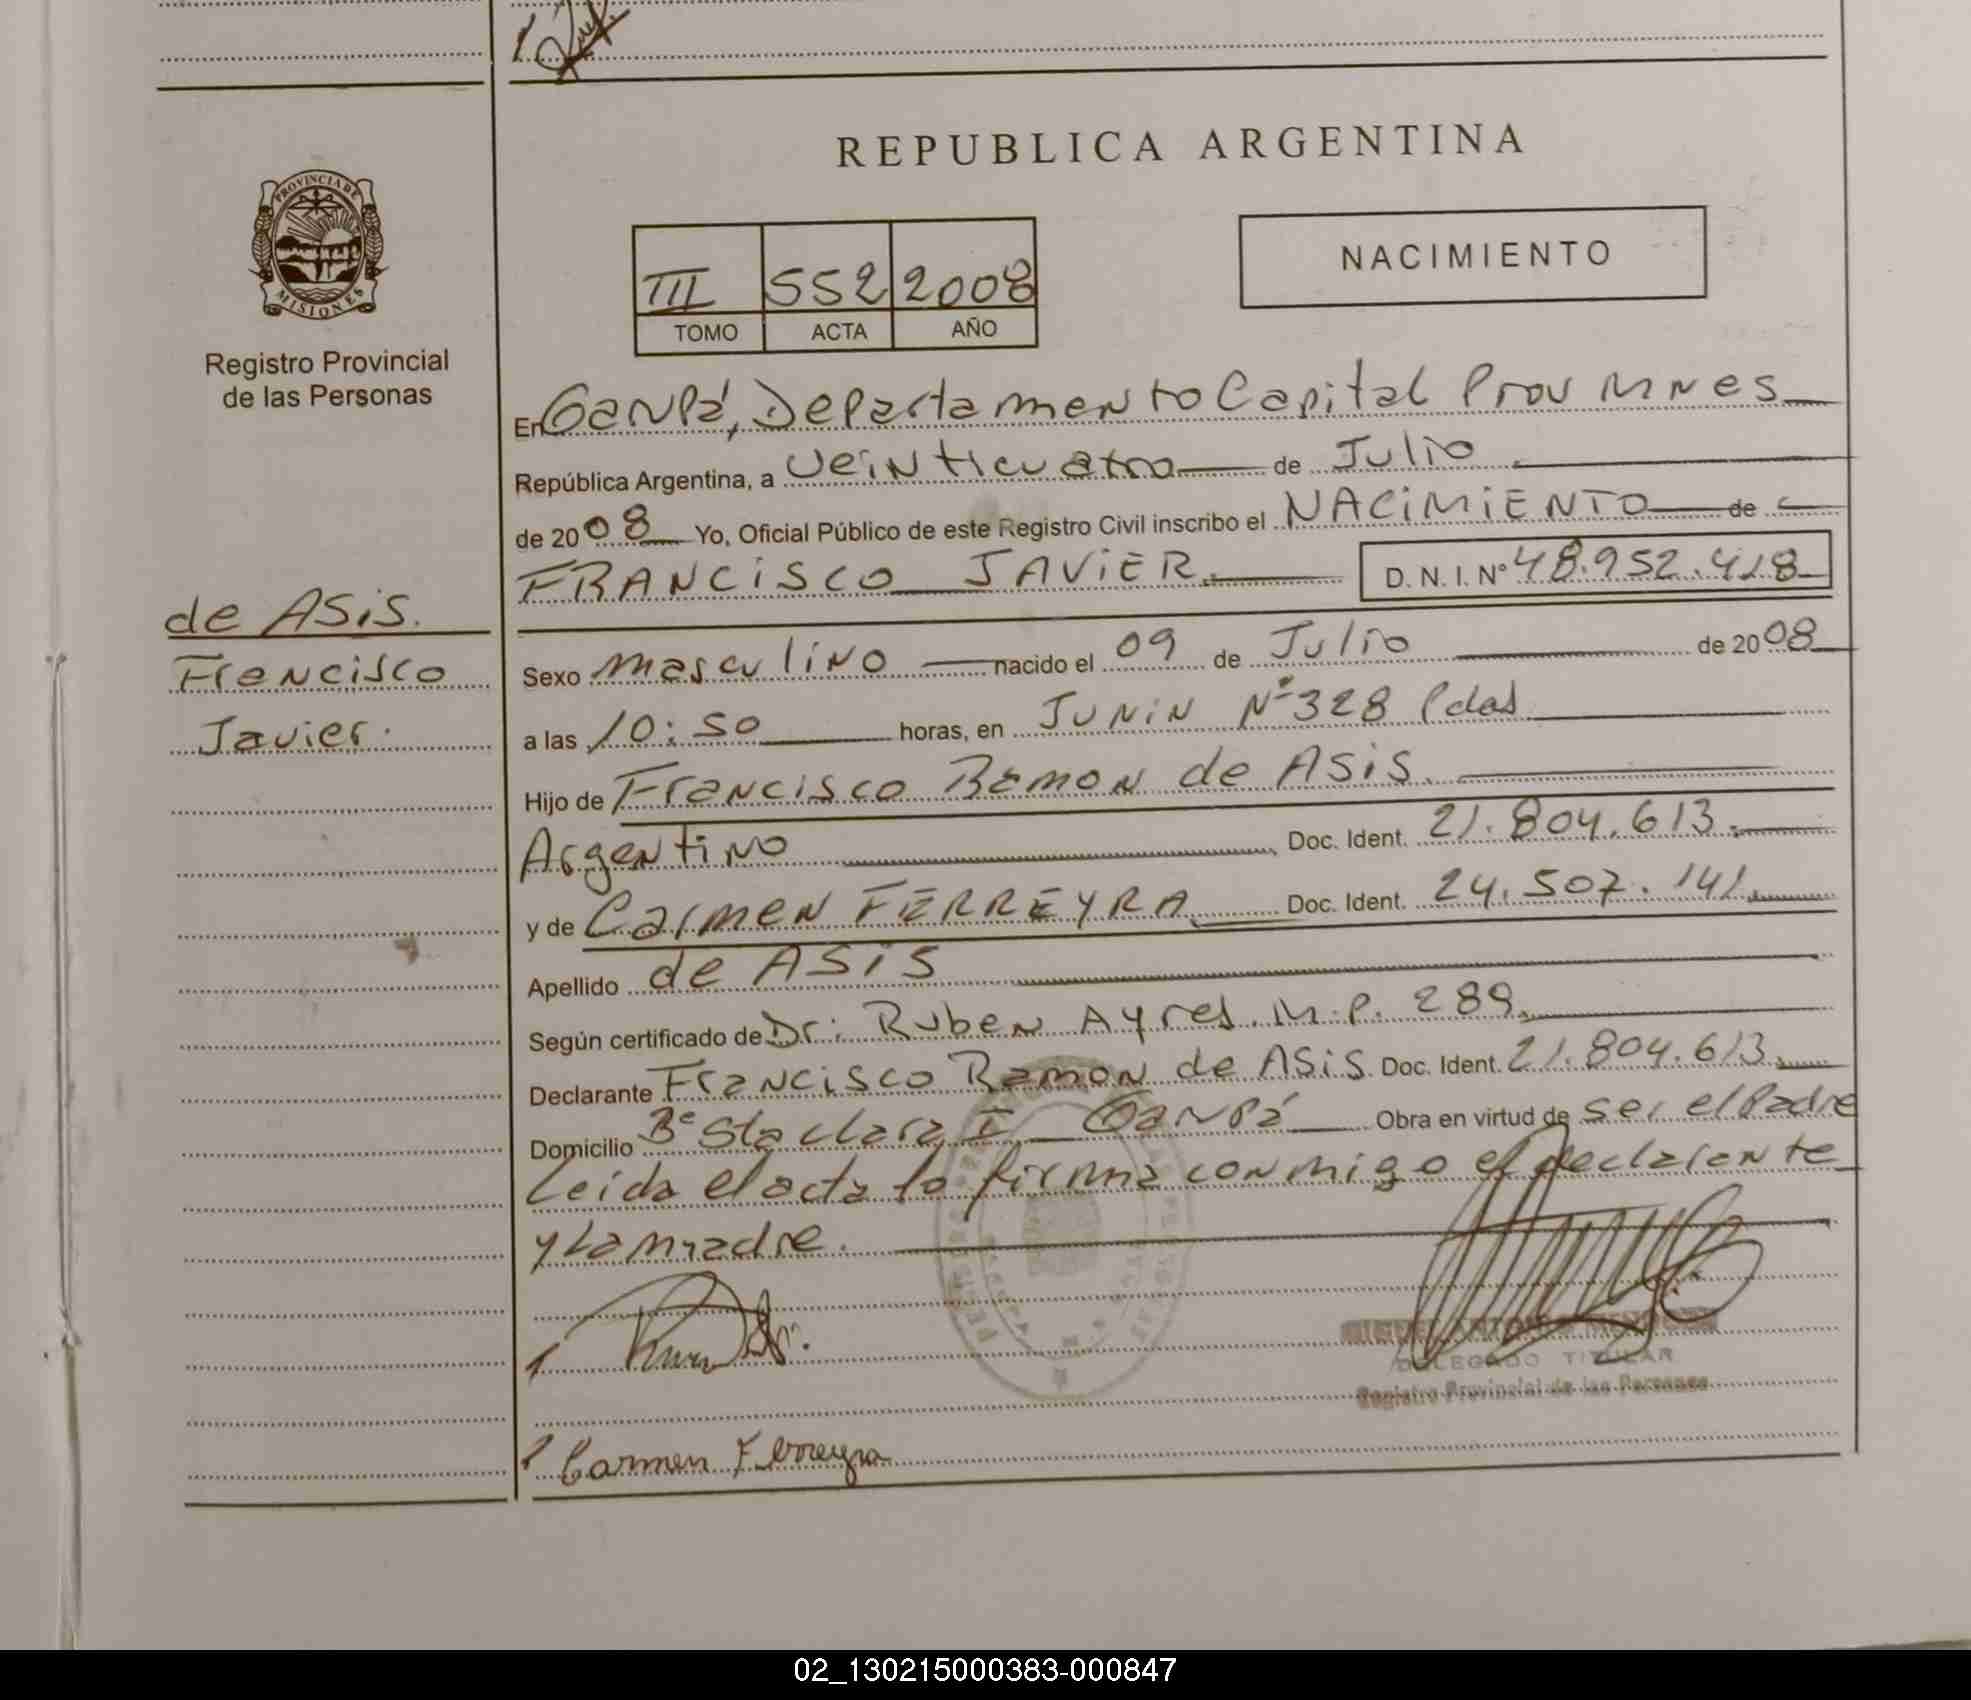 REPUBLICA ARGENTINA
PROVINCIA DE
MISIONES
Registro Provincial
de las Personas
NACIMIENTO
III 552 2008
TOMO ACTA AÑO
En Garupá, Departamento Capital Prov Mnes
República Argentina, a veinticuatro de Julio
de 2008 Yo, Oficial Público de este Registro Civil inscribo el NACIMIENTO de
FRANCISCO JAVIER. D. N. I. Nº 48.952.418
de ASiS.
Francisco
Javier.
Sexo masculino nacido el 09 de Julio de 2008
a las 10:50 horas, en JUNiN Nº 328 Pdas
Hijo de Francisco Ramon de ASiS.
Argentino Doc. Ident. 21.804.613.
y de Carmen FERREYRA Doc. Ident. 24.507.141.
Apellido de ASiS
Según certificado de Dr. Ruben Ayres. M.P. 289.
Declarante Francisco Ramon de ASiS. Doc. Ident. 21.804.613.
Domicilio Bº Sta Clara I Garupá Obra en virtud de ser el Padre
Leida el acta la firma conmigo el declarante
y La madre.
DELEGADO TITULAR
Registro Provincial de las Personas
Carmen Ferreyra
02_130215000383-000847